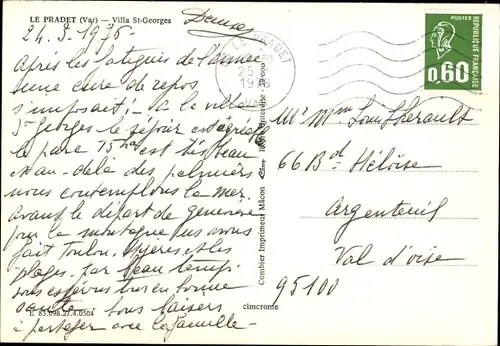 LE PRADET (Var) — Villa St-Georges
24.3.1976-
Après les fatigues de l'année
une cure de repos
s'imposait! - à la villa
St Georges le séjour est agréable
le parc 75 ha est très beau
Au-delà des palmiers
nous contemplons la mer
avant le départ de
pour la montagne us avons
fait Toulon. Hyères et les
plages. Par beau temps
vous espérons tous en bonne
santé. bons baisers
à partager avec la famille -
E 83.098.27.4.0504
cimcrome
Combier Imprimeur Mâcon
LE PRADET
25
1976
POSTES
REPUBLIQUE FRANÇAISE
0,60
Mr Mme Louis Lherault
66 Bd Héloïse
Argenteuil
Val d'oise
95100